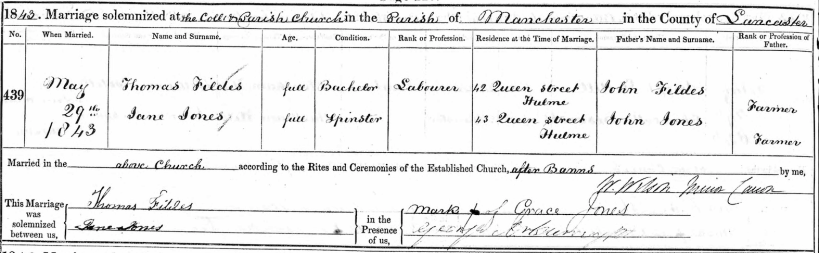 1843. Marriage solemnized at the Coll & Parish Church in the Parish of Manchester in the County of Lancaster
No. When Married. Name and Surname. Age. Condition. Rank or Profession. Residence at the Time of Marriage. Father's Name and Surname. Rank or Profession of Father.
439 May 29th 1843
Thomas Fildes full Bachelor Labourer 42 Queen street Hulme John Fildes Farmer
Jane Jones full Spinster 43 Queen street Hulme John Jones Farmer
Married in the above Church according to the Rites and Ceremonies of the Established Church, after Banns by me,
W Wilson Minor Canon
This Marriage was solemnized between us, Thomas Fildes Jane Jones in the Presence of us, Mark of Grace Jones
George